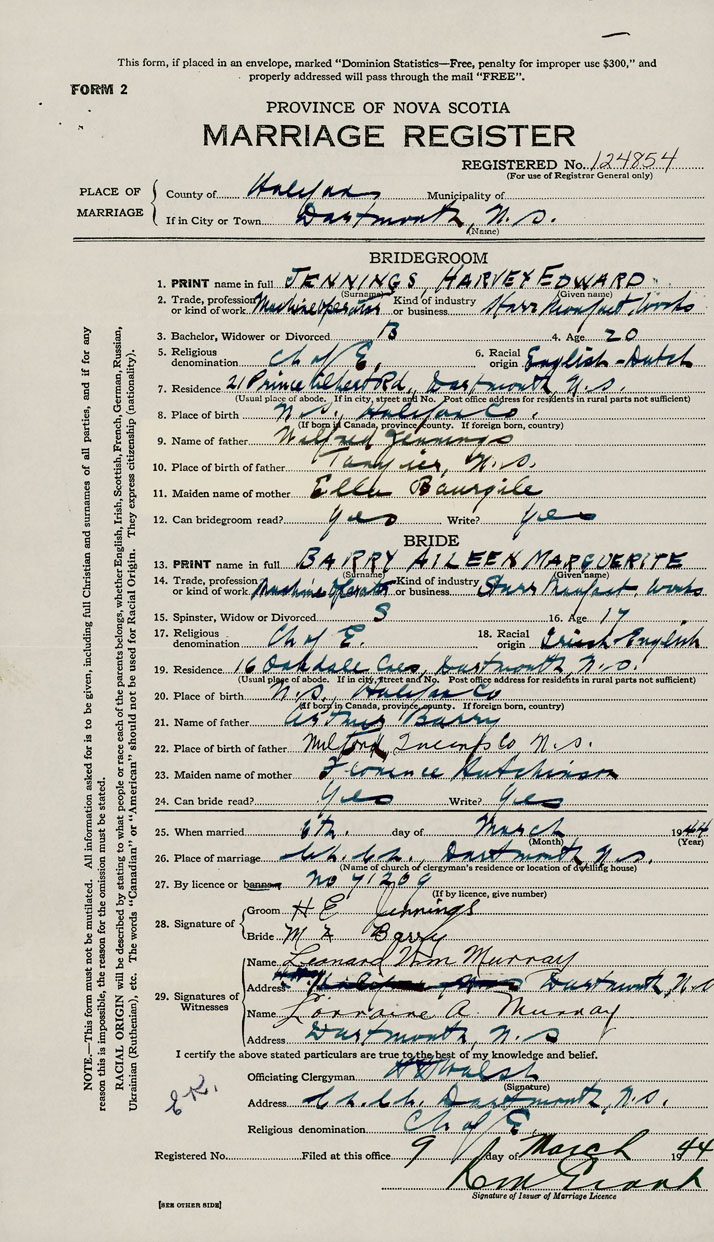 This form, if placed in an envelope, marked "Dominion Statistics—Free, penalty for improper use $300," and
properly addressed will pass through the mail "FREE".
FORM 2
PROVINCE OF NOVA SCOTIA
MARRIAGE REGISTER
REGISTERED No. 124854
(For use of Registrar General only)
PLACE OF MARRIAGE
County of Halifax Municipality of
If in City or Town Dartmouth, N.S.
(Name)
BRIDEGROOM
1. PRINT name in full JENNINGS, HARVEY EDWARD
(Surname) (Given name)
2. Trade, profession or kind of work Machine operator Kind of industry or business Starr Manufact. Works
3. Bachelor, Widower or Divorced B 4. Age 20
5. Religious denomination Ch of E. 6. Racial origin English-Dutch
7. Residence 21 Prince Albert Rd., Dartmouth, N.S.
(Usual place of abode. If in city, street and No. Post office address for residents in rural parts not sufficient)
8. Place of birth N.S., Halifax Co.
(If born in Canada, province, county. If foreign born, country)
9. Name of father Wilfred Jennings
10. Place of birth of father Tangier, N.S.
11. Maiden name of mother Ella Baurgile
12. Can bridegroom read? yes Write? yes
BRIDE
13. PRINT name in full BARRY AILEEN MARGUERITE
(Surname) (Given name)
14. Trade, profession or kind of work Machine Operator Kind of industry or business Starr Manufact. Works
15. Spinster, Widow or Divorced S 16. Age 17
17. Religious denomination Ch of E. 18. Racial origin Irish-English
19. Residence 16 Oakdale Cres, Dartmouth, N.S.
(Usual place of abode. If in city, street and No. Post office address for residents in rural parts not sufficient)
20. Place of birth N.S., Halifax Co
(If born in Canada, province, county. If foreign born, country)
21. Name of father Arthur Barry
22. Place of birth of father Milford, Co, N.S.
23. Maiden name of mother Florence Hutchinson
24. Can bride read? Yes Write? Yes
25. When married 6th. day of March 1944
(Month) (Year)
26. Place of marriage Ch. Ch., Dartmouth, N.S.
(Name of church of clergyman's residence or location of dwelling house)
27. By licence or banns no 71209
(If by licence, give number)
28. Signature of
Groom H E Jennings
Bride M A Barry
29. Signatures of Witnesses
Name Leonard Wm Murray
Address Dartmouth, N.S
Name Lorraine A. Murray
Address Dartmouth, N.S
I certify the above stated particulars are true to the best of my knowledge and belief.
Officiating Clergyman Walsh
(Signature)
Address Ch. Ch. Dartmouth, N.S.
Religious denomination Ch of E
Registered No. Filed at this office 9 day of March 1944
Signature of Issuer of Marriage Licence
[SEE OTHER SIDE]
NOTE.—This form must not be mutilated. All information asked for is to be given, including full Christian and surnames of all parties, and if for any
reason this is impossible, the reason for the omission must be stated.
RACIAL ORIGIN will be described by stating to what people or race each of the parents belongs, whether English, Irish, Scottish, French, German, Russian,
Ukrainian (Ruthenian), etc. The words "Canadian" or "American" should not be used for Racial Origin. They express citizenship (nationality).